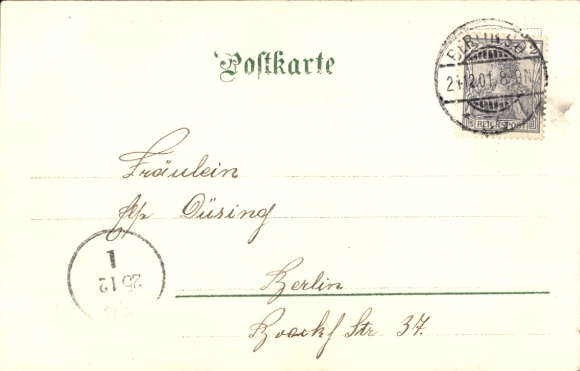 Postkarte
BERLIN S.O.
24.12.01. 8-9N.
REICHSPOST
Fräulein
Düsing
Berlin
Str. 37.
1
25 12